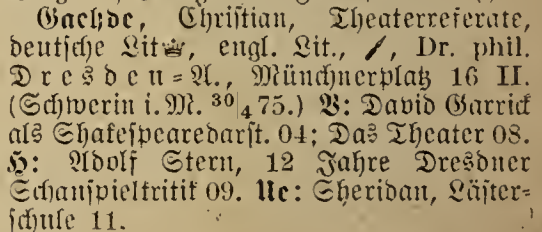 Gaehde, Christian, Theaterreferate,
deutsche Lit., engl. Lit., Dr. phil.
Dresden=A., Münchnerplatz 16 II.
(Schwerin i. M. 30|4 75.) V: David Garrick
als Shakespearedarst. 04; Das Theater 08.
H: Adolf Stern, 12 Jahre Dresdner
Schauspielkritik 09. Ue: Sheridan, Läster=
schule 11.